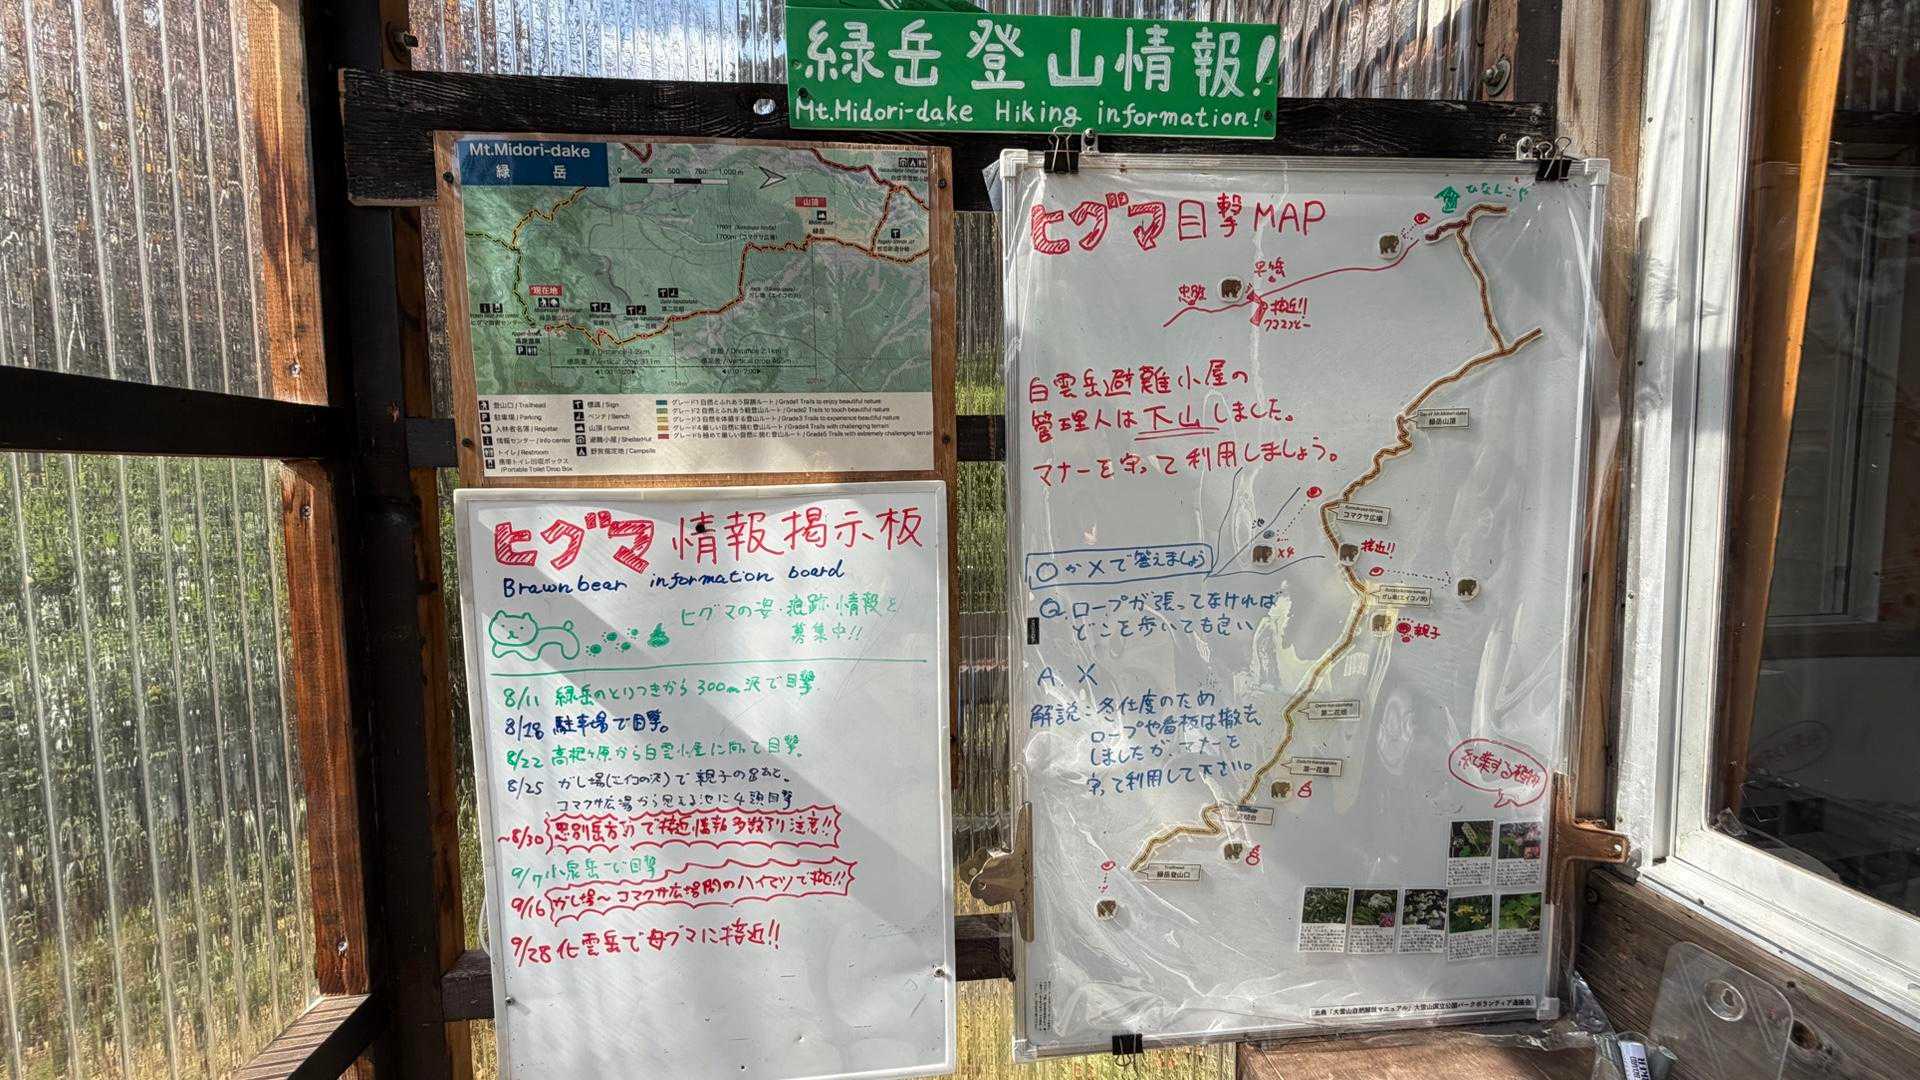 緑岳登山情報!
Mt.Midori-dake Hiking information!
Mt.Midori-dake
緑 岳
0 250 500 750 1,000 m
山頂
緑岳
1700m (コマクサ広場)
現在地
緑岳登山口
見晴台
第一花畑
第二花畑
ヒグマ情報センター
高原温泉
距離 / Distance 2.1km
登山口 / Trailhead
駐車場 / Parking
入林者名簿 / Register
情報センター / Info center
トイレ / Restroom
携帯トイレ回収ボックス
/ Portable Toilet Drop Box
標識 / Sign
ベンチ / Bench
山頂 / Summit
避難小屋 / ShelterHut
野営指定地 / Campsite
グレード1 自然とふれあう探勝ルート / Grade1 Trails to enjoy beautiful nature
グレード2 自然とふれあう軽登山ルート / Grade2 Trails to touch beautiful nature
グレード3 自然を体感する登山ルート / Grade3 Trails to experience beautiful nature
グレード4 厳しい自然に挑む登山ルート / Grade4 Trails with challenging terrain
グレード5 極めて厳しい自然に挑む登山ルート / Grade5 Trails with extremely challenging terrain
ヒグマ情報掲示板
Brawnbear information board
ヒグマの姿・痕跡情報を
募集中!!
8/11 緑岳のとりつきから300m沢で目撃
8/18 駐車場で目撃。
8/22 高根ヶ原から白雲小屋に向って目撃。
8/25 ガレ場(エイコの沢)で親子の足あと。
コマクサ広場から見える池に4頭目撃
~8/30 忠別岳方面で接近情報多数アリ注意!!
9/7 小泉岳で目撃
9/16 ガレ場~コマクサ広場間のハイマツで接近!!
9/28 化雲岳で母グマに接近!!
ヒグマ目撃MAP
ひなんごや
忠別
接近!!
白雲岳避難小屋の
管理人は下山しました。
マナーを守って利用しましょう。
緑岳山頂
コマクサ広場
池
x4
接近!!
ガレ場(エイコノ沢)
親子
○か×で答えましょう
Q. ロープが張ってなければ
どこを歩いても良い
A. ×
解説:冬仕度のため
ロープや看板は撤去
しましたが、マナーを
守って利用して下さい。
第二花畑
第一花畑
見晴台
緑岳登山口
紅葉する植物
出典「大雪山自然解説マニュアル」大雪山国立公園パークボランティア連絡会